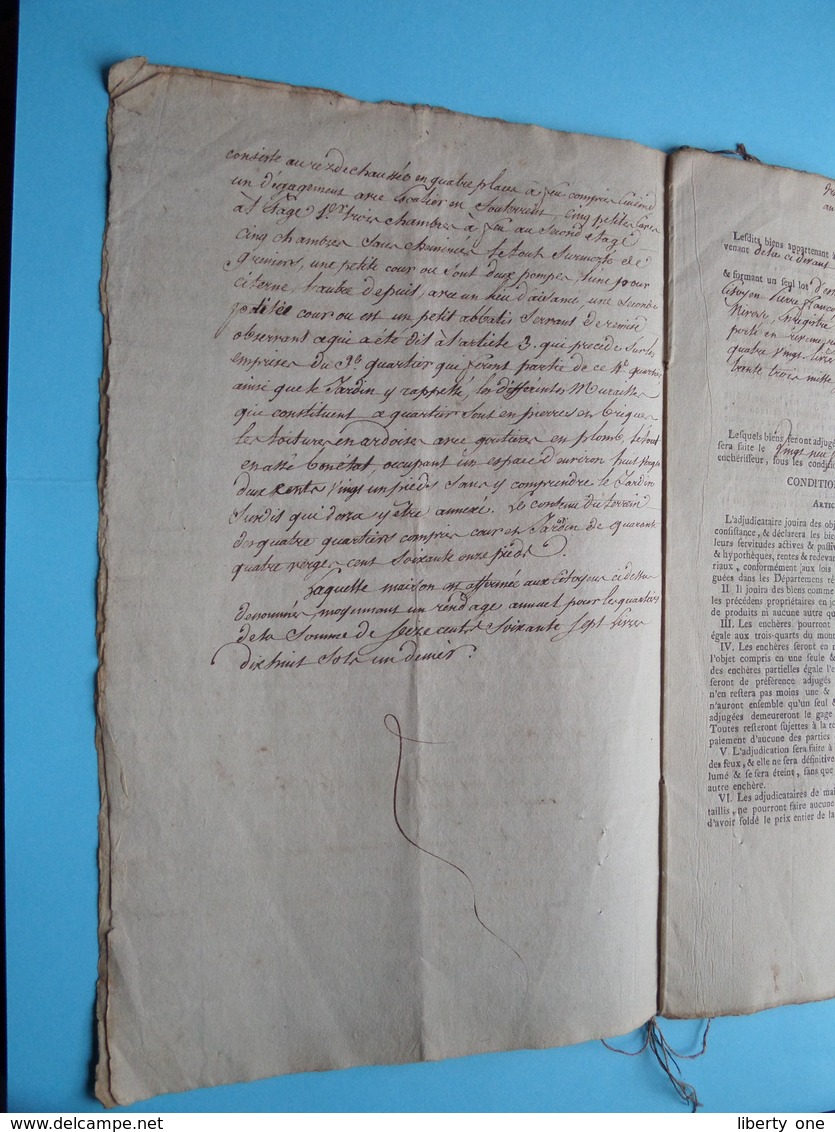 consiste au rez de chaussée en quatre places à feu compris Cuisine
un dégagement avec Escalier en Souterrein, Cinq petites Caves
à l'Etage 1.er trois chambres à feu au Second étage
Cinq chambres Sans cheminées le tout Surmonté de
greniers, une petite cour ou Sont deux pompes, l'une pour
citerne, l'autre depuit, avec un lieu d'aisance, une Seconde
petitte cour ou est un petit abbatis Servant de remise
observant ce qui a été dit à l'article 3. qui précède Sur les
emprises du 3e quartier qui feront partie de ce 4e quartier
ainsi que le Jardin y rappellé, les différentes Murailles
qui constituent ce quartier Sont en pierres en briques
les toitures en ardoise avec goutières en plomb, le tout
en assé bon état, occupant un espace d'environ huit Verges
deux cents vingt un pieds Sans y comprendre le Jardin
Surdit qui devra y être annexé. Le contenu du terrein
des quatre quartiers compris cour et Jardin de quarante
quatre verges cent soixante onze pieds.
Laquelle maison est affermée aux Citoyens ci dessus
denommés moyennant un rendage annuel pour les quartiers
de la Somme de Seize cents Soixante Sept livres
dix huit Sols un denier.
Lesdits biens appartenant à
venant de la ci devant
& formant un seul lot d'
Citoyen Pierre François
porté en revenu
quatre vingt livres
trente trois mille
Lesquels biens seront adjugés
sera faite le vingt neuf
enchérisseur, sous les condit
CONDITION
ARTIC
L'adjudicataire jouira des obje
consistance, & déclarera les bien
leurs servitudes actives & passiv
& hypothèques, rentes & redevan
riaux, conformément aux lois
guées dans les Départemens ré
II. Il jouira des biens comme
les précédens propriétaires en jo
de produits ni aucune autre qu
III. Les enchères pourront
égale aux trois-quarts du mont
IV. Les enchères seront en m
l'objet compris en une seule &
des enchères partielles égale l'e
seront de préférence adjugés
n'en restera pas moins une &
n'auront ensemble qu'un seul &
adjugées demeureront le gage
Toutes resteront sujettes à la re
paiement d'aucune des parties
V. L'adjudication sera faite à
des feux, & elle ne sera définitive
lumé & se sera éteint, sans que
autre enchère.
VI. Les adjudicataires de mai
taillis, ne pourront faire aucune
d'avoir soldé le prix entier de la
liberty one